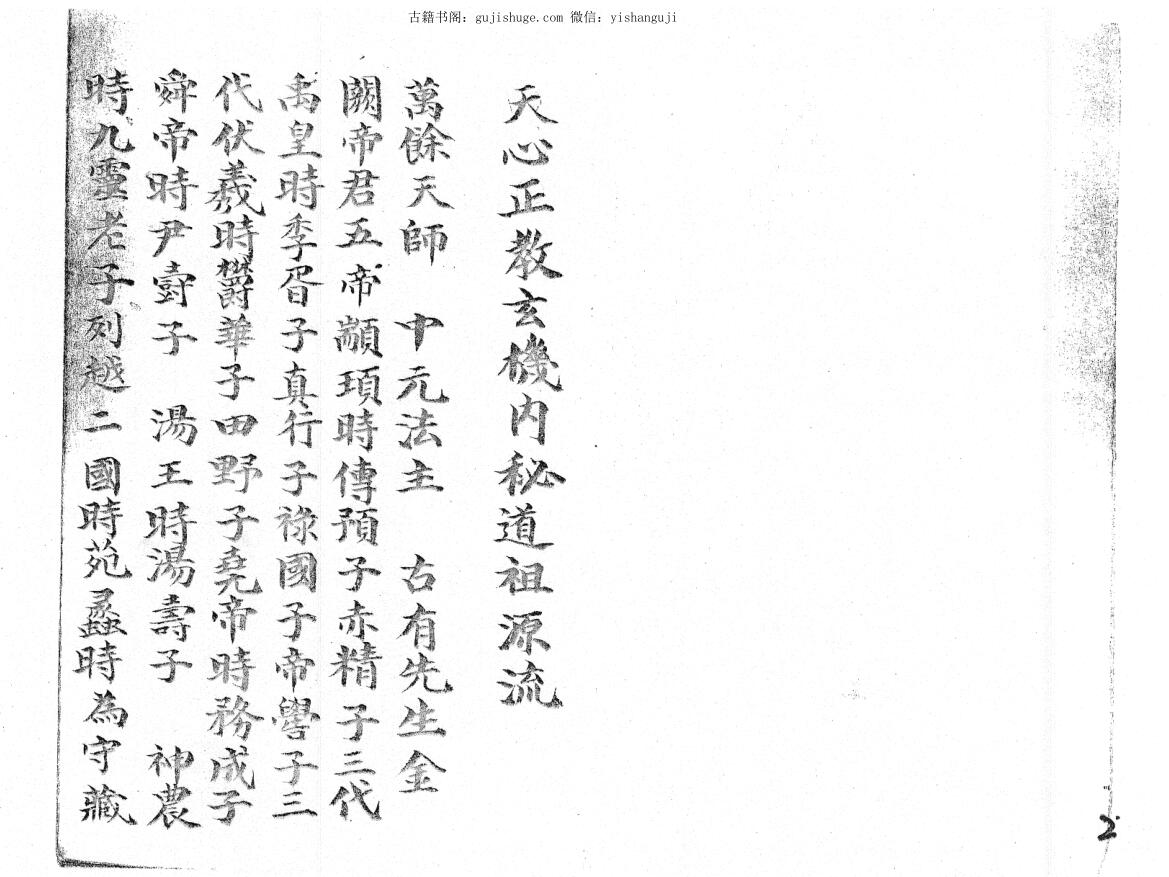 古籍书阁：gujishuge.com 微信：yishanguji
天心正教玄機内秘道祖源流
萬餘天師　中元法主　古有先生金
闕帝君五帝顓頊時傳預子赤精子三代
禹皇時季胥子真行子祿國子帝嚳子三
代伏羲時欝華子田野子堯帝時務成子
舜帝時尹壽子　湯王時湯壽子　神農
時九靈老子列越二國時范蠡時為守藏
2